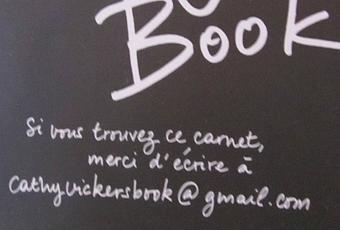 Book
Si vous trouvez ce carnet,
merci d'écrire à
Cathyvickersbook@gmail.com